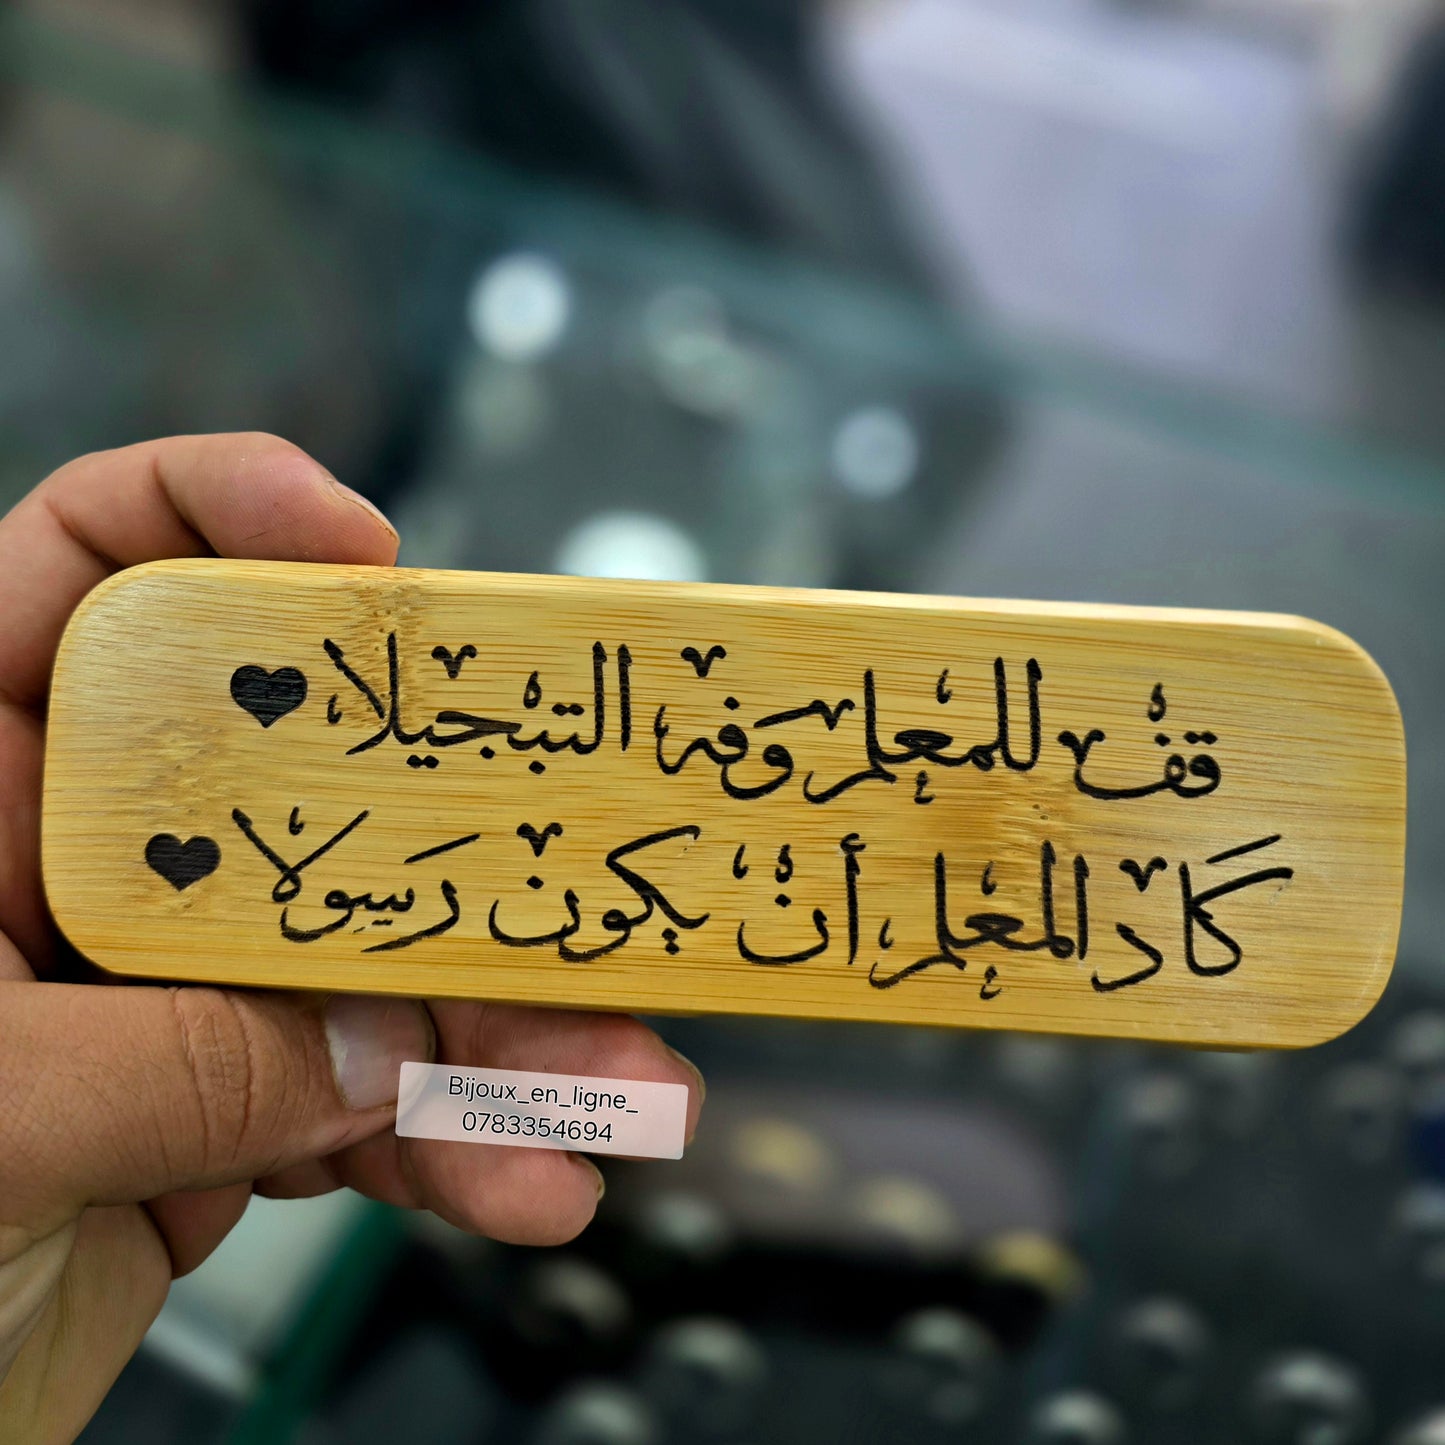 قف للمعلم وفه التبجيلا
كاد المعلم أن يكون رسولا
Bijoux_en_ligne_
0783354694